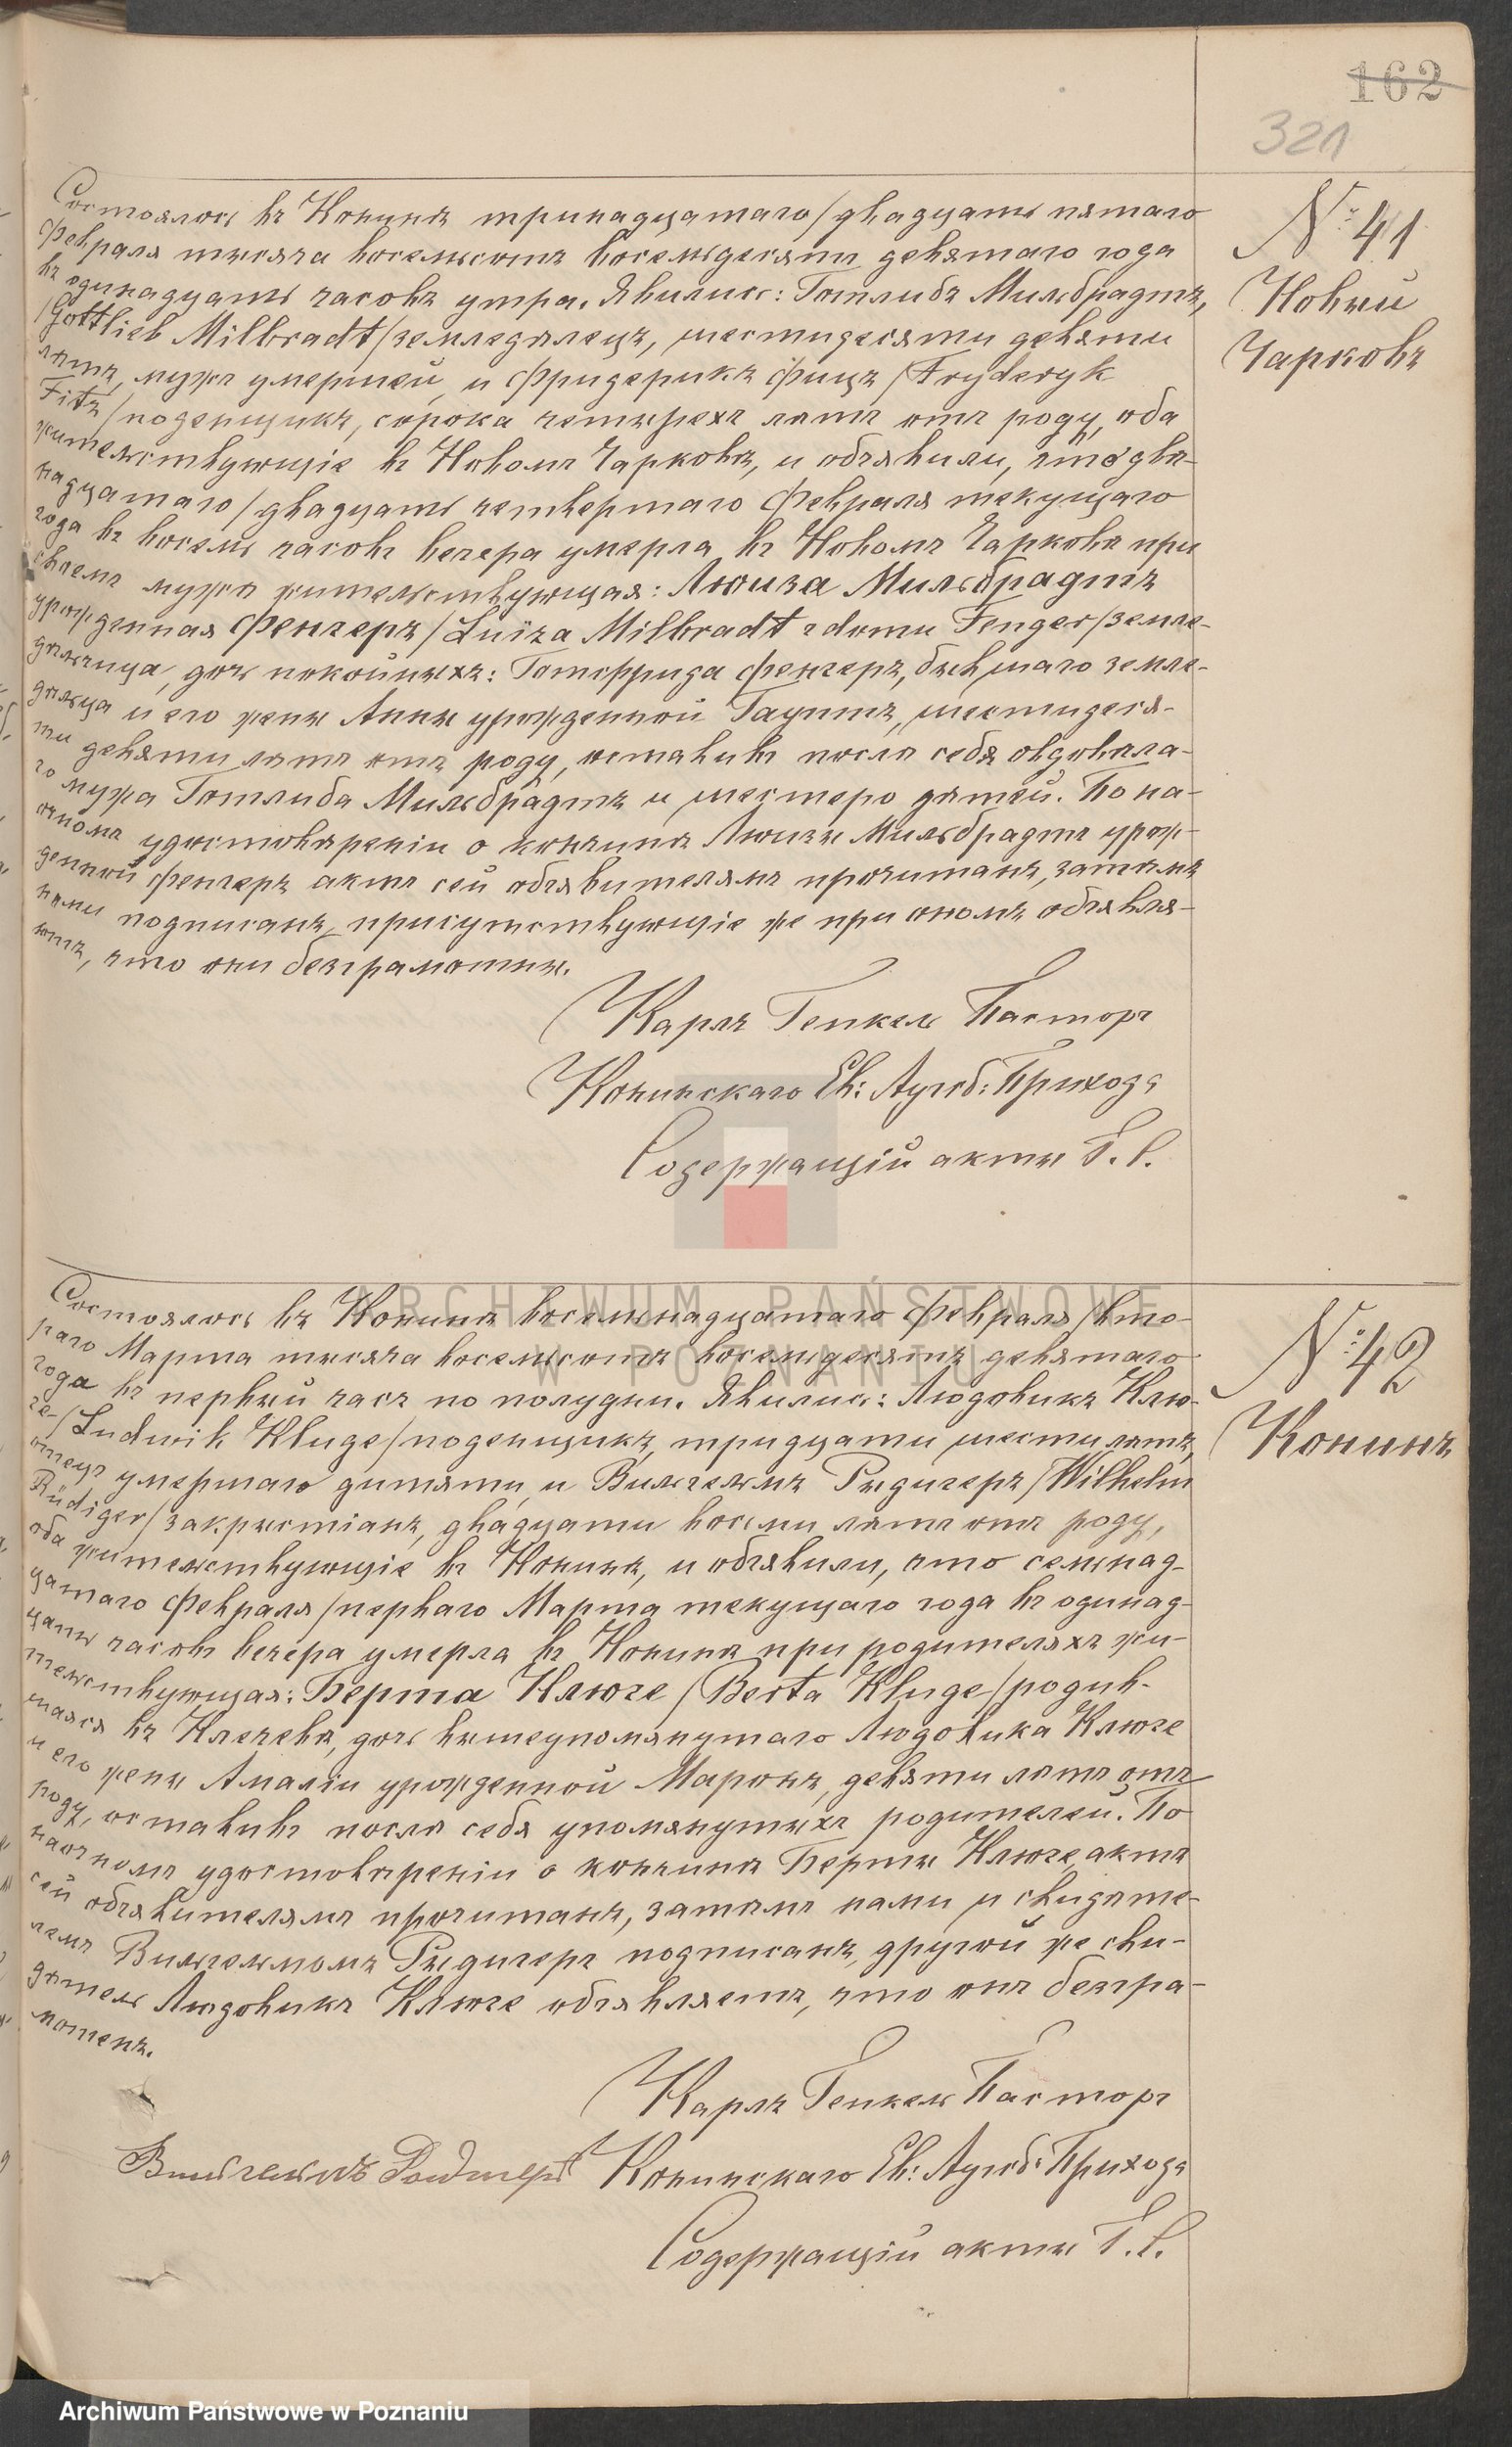 162
321
№ 41
Новый
Чарковъ
Состоялось въ Конинѣ тринадцатаго /двадцать пятаго
Февраля тысяча восемьсотъ восемьдесятъ девятаго года
въ одинадцать часовъ утра. Явились: Готлибъ Мильбрадтъ,
/Gottlieb Milbradt/ земледѣлецъ, шестидесяти девяти
лѣтъ, мужъ умершей, и Фридерикъ Фицъ /Fryderyk
Fitz/ поденщикъ, сорока четырехъ лѣтъ отъ роду, оба
жительствующіе въ Новомъ Чарковѣ, и объявили, что двѣ-
надцатаго /двадцать четвертаго Февраля текущаго
года въ восемь часовъ вечера умерла въ Новомъ Чарковѣ при
своемъ мужѣ жительствующая: Люиза Мильбрадтъ
урожденная Фенгеръ /Luiza Milbradt z domu Fenger/ земле-
дѣльчица, дочь покойныхъ: Готфрида Фенгеръ, бывшаго земле-
дѣльца и его жены Анны урожденной Гауптъ, шестидеся-
ти девяти лѣтъ отъ роду, оставивъ послѣ себя овдовѣла-
го мужа Готлиба Мильбрадтъ и шестеро дѣтей. По на-
очномъ удостовѣреніи о кончинѣ Люизы Мильбрадтъ урож-
денной Фенгеръ актъ сей объявителямъ прочитанъ, затѣмъ
нами подписанъ, присутствующіе же при ономъ объявля-
ютъ, что они безграмотны.
Карлъ Генкель Пасторъ
Конинскаго Ев: Аугсб: Прихода
Содержащій акты Г. С.
№ 42
Конинъ
Состоялось въ Конинѣ восемьнадцатаго Февраля /вто-
раго Марта тысяча восемьсотъ восемьдесятъ девятаго
года въ первый часъ по полудни. Явились: Людовикъ Клю-
ге /Ludwik Kluge/ поденщикъ, тридцати шести лѣтъ,
отецъ умершаго дитяти, и Вильгельмъ Ридигеръ /Wilhelm
Rüdiger/ закристіанъ, двадцати восьми лѣтъ отъ роду,
оба жительствующіе въ Конинѣ, и объявили, что семьнад-
цатаго Февраля /перваго Марта текущаго года въ одинад-
цать часовъ вечера умерла въ Конинѣ при родителяхъ жи-
тельствующая: Берта Клюге /Berta Kluge/ родив-
шаяся въ Клечевѣ, дочь вышеупомянутаго Людовика Клюге
и его жены Амаліи урожденной Маронъ, девяти лѣтъ отъ
роду, оставивъ послѣ себя упомянутыхъ родителей. По
наочномъ удостовѣреніи о кончинѣ Берты Клюге, актъ
сей объявителямъ прочитанъ, затѣмъ нами и свидѣте-
лемъ Вильгельмомъ Ридигеръ подписанъ, другой же сви-
дѣтель Людовикъ Клюге объявляетъ, что онъ безгра-
мотенъ.
Карлъ Генкель Пасторъ
Вильгельмъ Ридигеръ Конинскаго Ев: Аугсб: Прихода
Содержащій акты Г. С.
ARCHIWUM PAŃSTWOWE
W POZNANIU
Archiwum Państwowe w Poznaniu